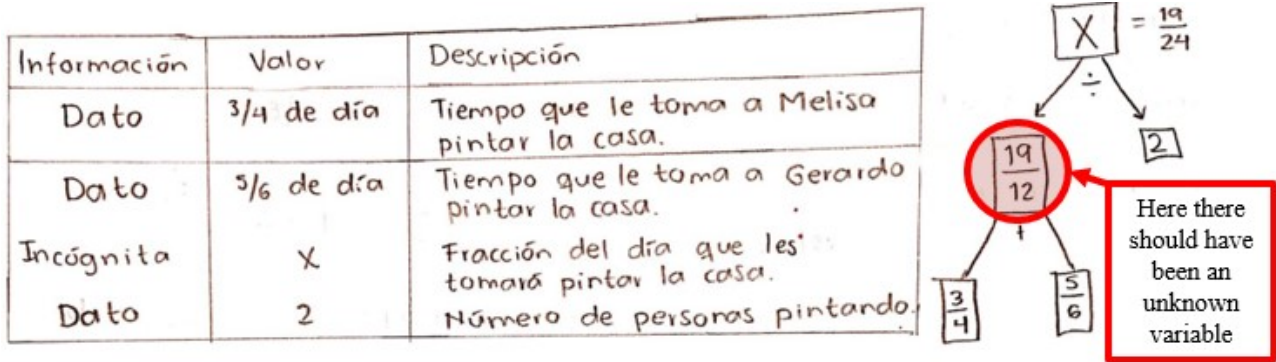 Información Valor Descripción
Dato 3/4 de día Tiempo que le toma a Melisa
pintar la casa.
Dato 5/6 de día Tiempo que le toma a Gerardo
pintar la casa.
Incógnita X Fracción del día que les
tomará pintar la casa.
Dato 2 Número de personas pintando.
X = 19/24
÷
19/12
2
+
3/4
5/6
Here there
should have
been an
unknown
variable